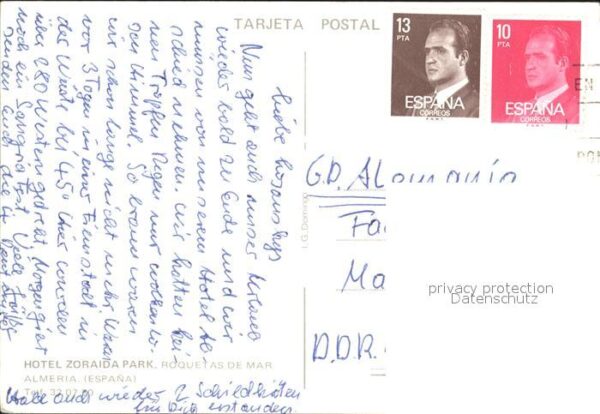 TARJETA POSTAL
13
PTA
ESPAÑA
CORREOS
10
PTA
ESPAÑA
CORREOS
EN
Liebe
Nun geht auch unser Urlaub
wieder bald zu Ende und wir
müssen von unserem Hotel Ab-
schied nehmen. Wir hatten kei-
nen Tropfen Regen nur wolkenlo-
sen Himmel. So braun waren
wir schon lange nicht mehr. Waren
vor 3 Tagen in einer Filmstadt in
der Wüste bei 45° hier wurden
über 280 Western gedreht. Morgen gibt
noch ein Sangria Fest. Viele Grüße
senden Euch die
Habe auch wieder 2 Schildkröten
für Dich erstanden
G.D. Alemania
Fa
Ma
D.D.R.
I.G. Domingo
privacy protection
Datenschutz
HOTEL ZORAIDA PARK. ROQUETAS DE MAR
ALMERIA. (ESPAÑA)